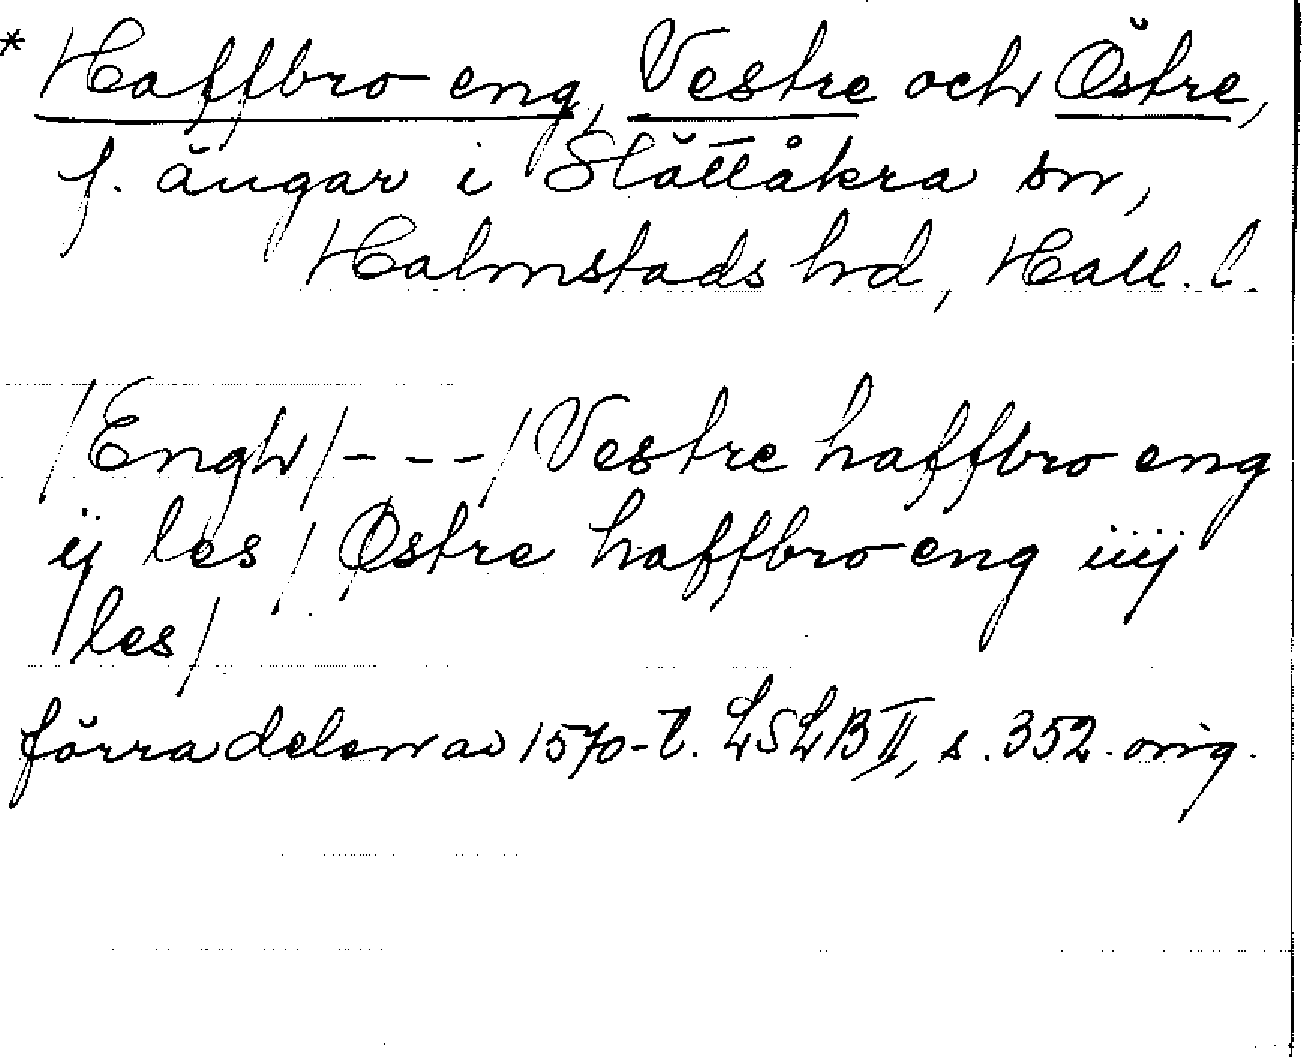 * Haffbro eng, Vestre och Östre,
f. ängar i Slättåkra sn,
Halmstads hd, Hall. l.
/Engh/---/Vestre haffbro eng
ij les/Østre haffbro eng iiij
les/
förra delen av 1570-t. LSLB II, s. 352. orig.